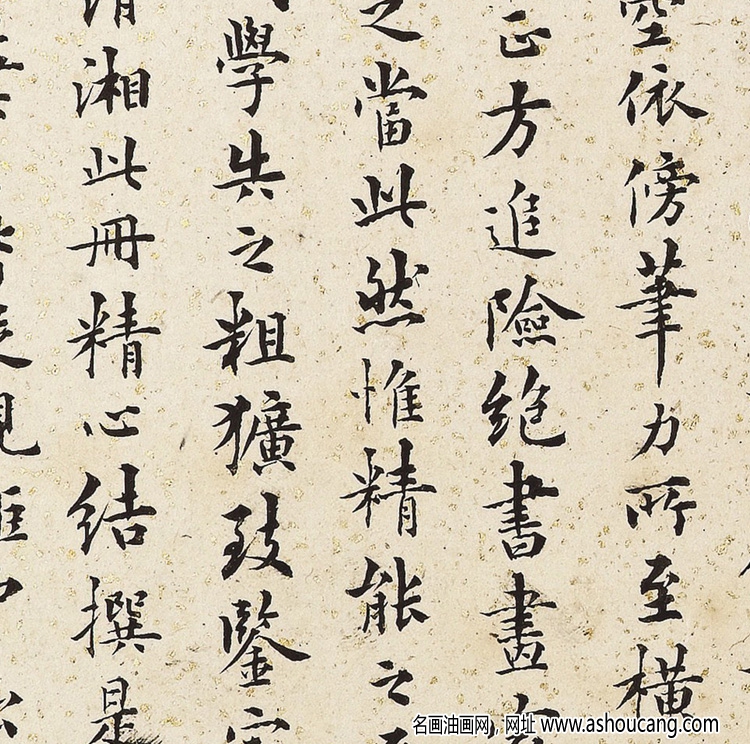 依傍筆力所至橫
正方進險絶書畫
之當此然惟精能之
學失之粗獷致鑒
湘此册精心結撰是
名画油画网，网址 www.ashoucang.com